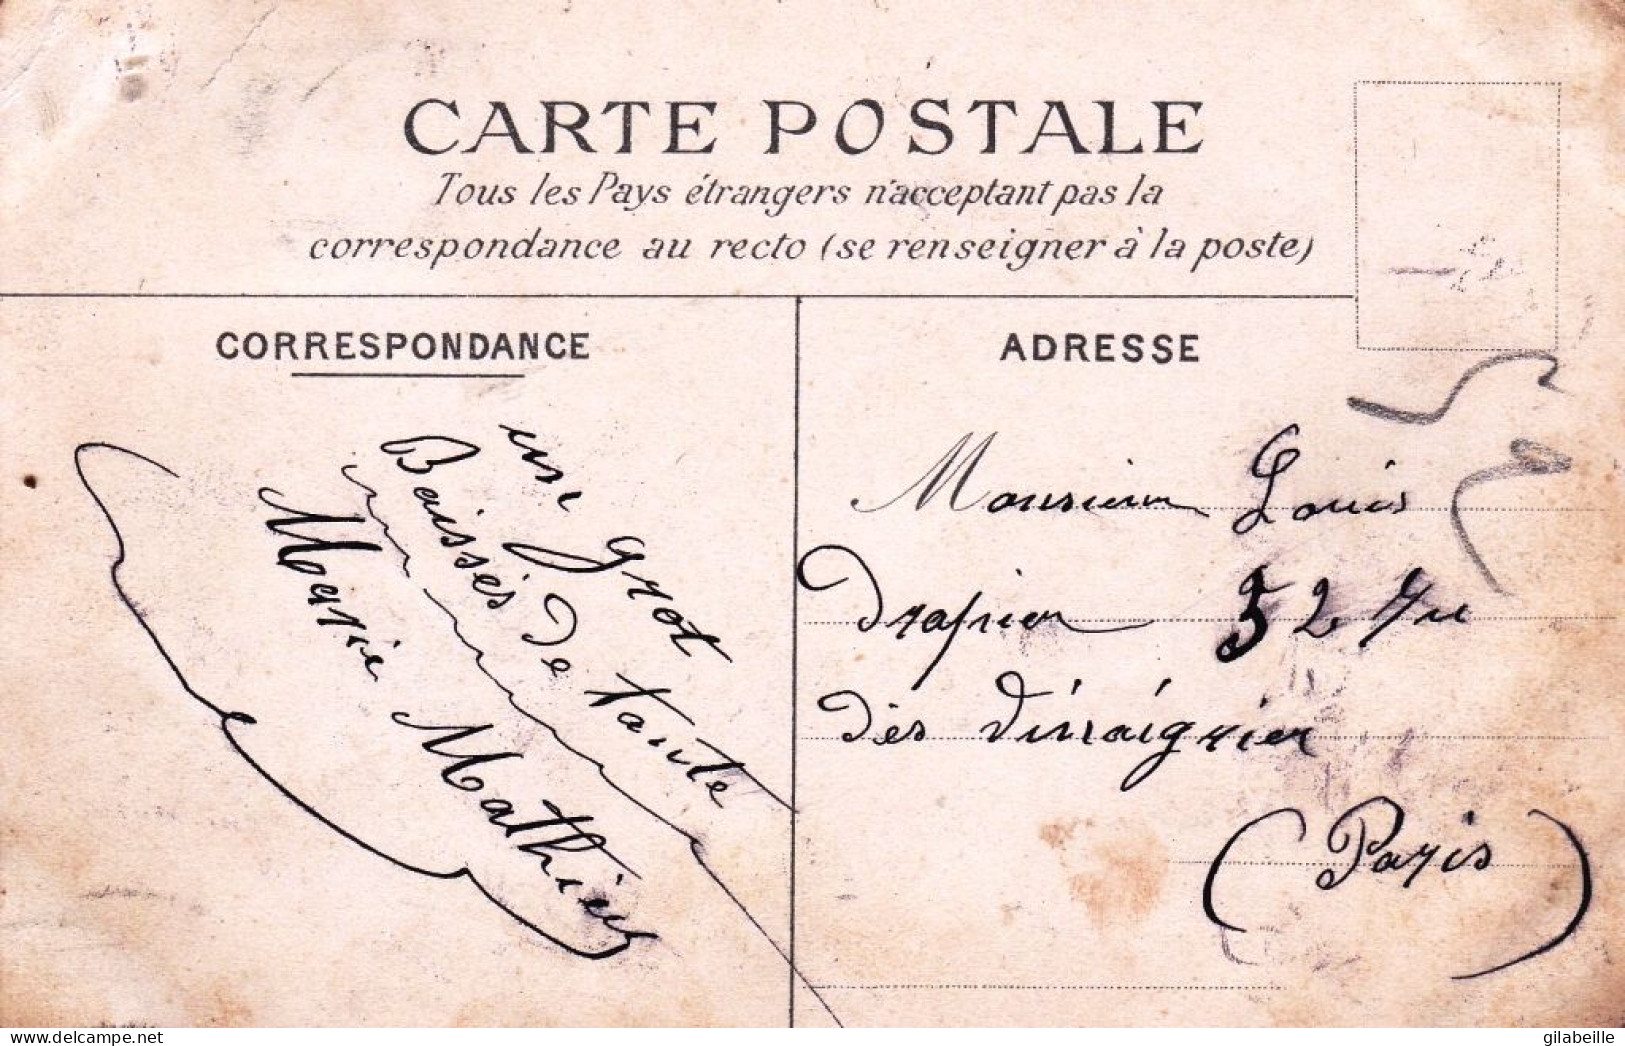 CARTE POSTALE
Tous les Pays étrangers n'acceptant pas la
correspondance au recto (se renseigner à la poste)
CORRESPONDANCE
un grot
Baissés De tante
Marie Mathieu
ADRESSE
Monsieur Louis
Drapier 52 Ru
Des Vinaigrier
(Paris)
gilabeille